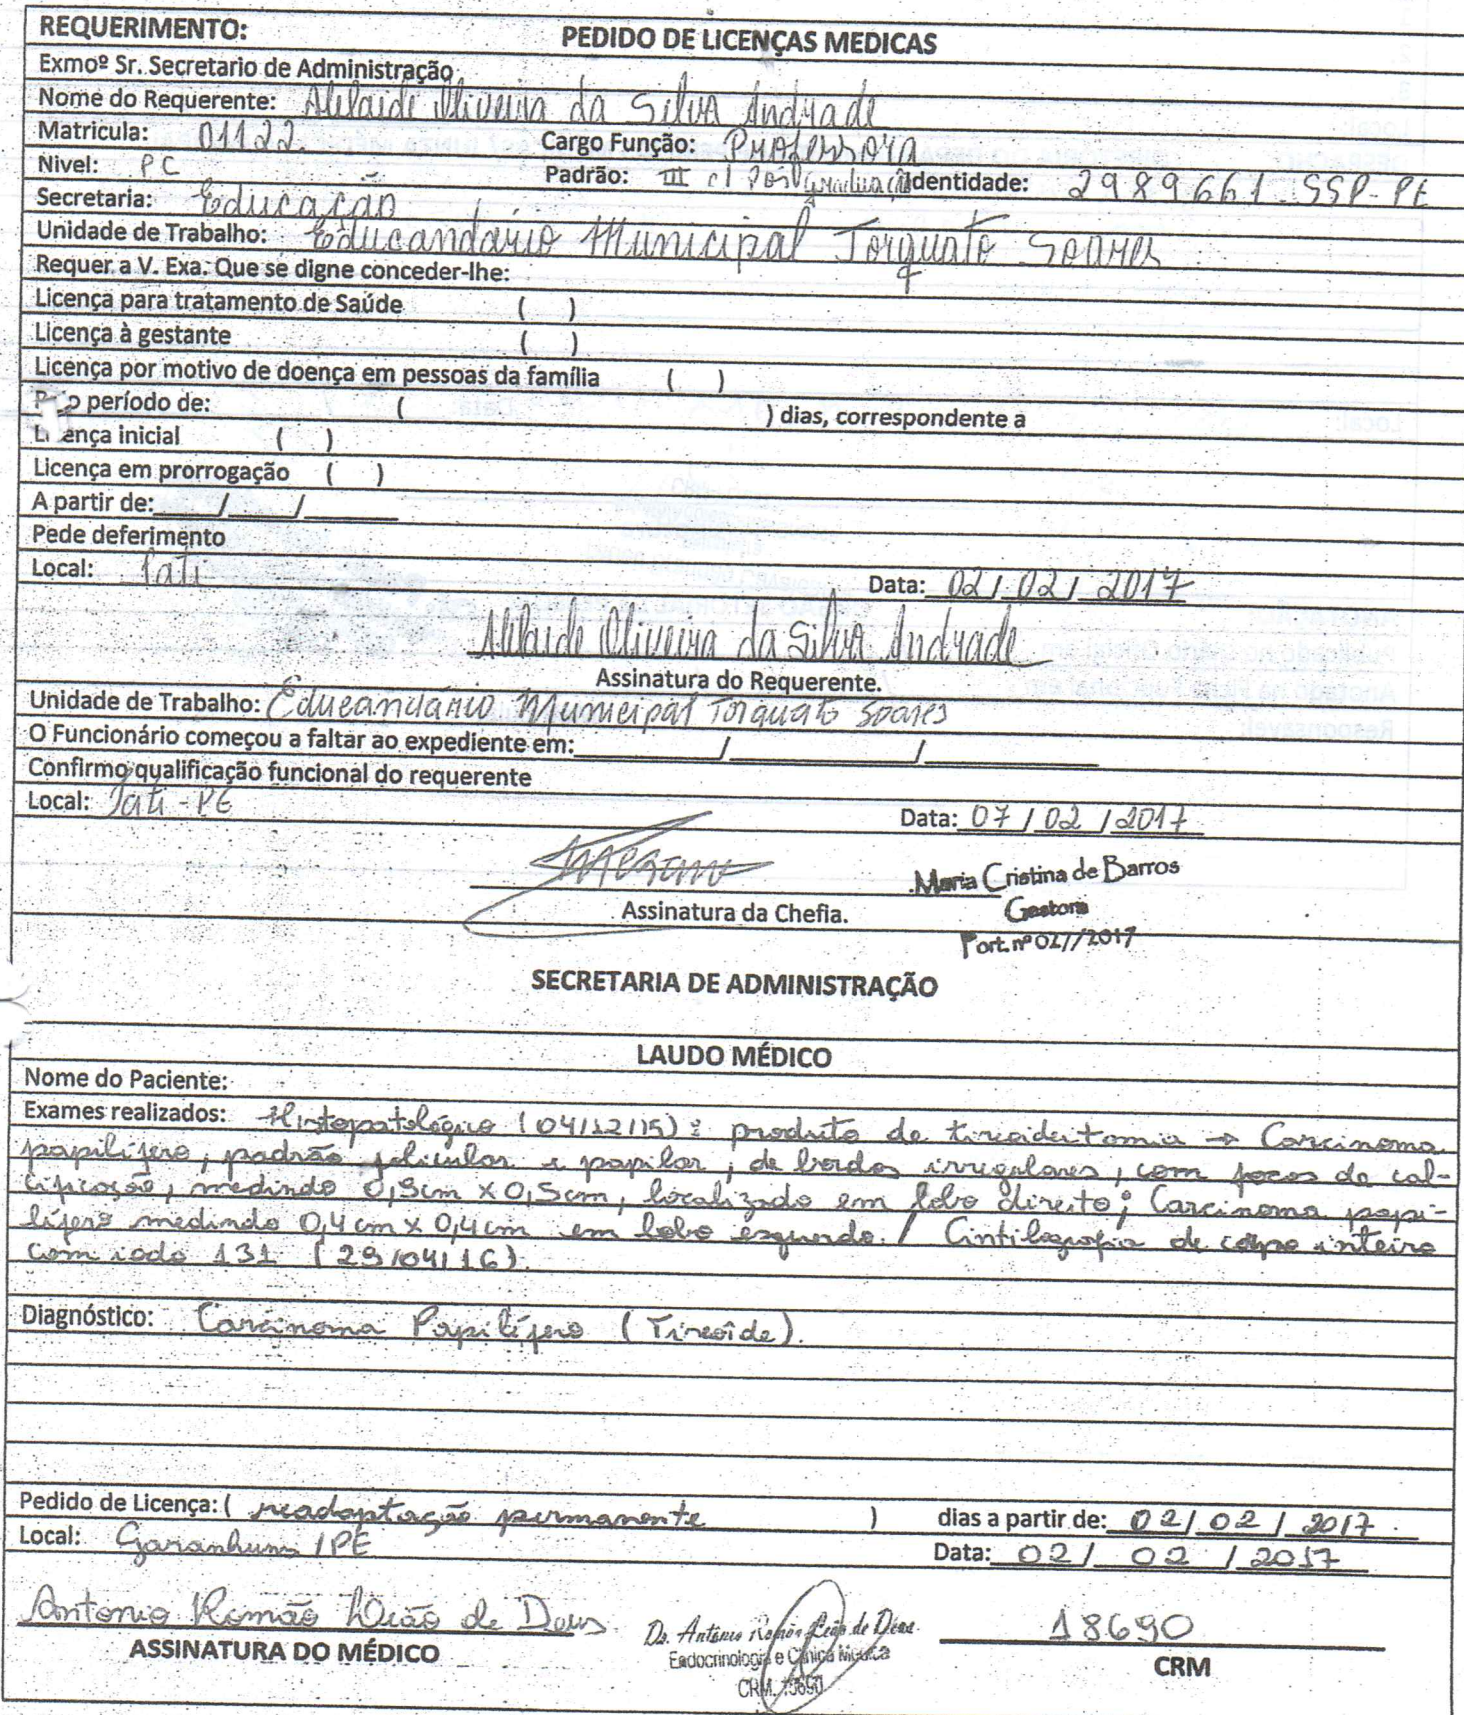 REQUERIMENTO: PEDIDO DE LICENÇAS MEDICAS
Exmoº Sr. Secretario de Administração
Nome do Requerente: Adelaide Oliveira da Silva Andrade
Matricula: 01122 Cargo Função: Professora
Nivel: PC Padrão: III c/ Pós Graduação Identidade: 2989661 SSP-PE
Secretaria: Educação
Unidade de Trabalho: Educandário Municipal Torquato Soares
Requer a V. Exa. Que se digne conceder-lhe:
Licença para tratamento de Saúde ( )
Licença à gestante ( )
Licença por motivo de doença em pessoas da família ( )
período de: ( ) dias, correspondente a
Licença inicial ( )
Licença em prorrogação ( )
A partir de: / /
Pede deferimento
Local: Iati Data: 02/02/2017
Adelaide Oliveira da Silva Andrade
Assinatura do Requerente.
Unidade de Trabalho: Educandário Municipal Torquato Soares
O Funcionário começou a faltar ao expediente em: / /
Confirmo qualificação funcional do requerente
Local: Iati - PE Data: 07/02/2017
Maria Cristina de Barros
Assinatura da Chefia. Gestora
Port. nº 027/2017
SECRETARIA DE ADMINISTRAÇÃO
LAUDO MÉDICO
Nome do Paciente:
Exames realizados: Histopatológico (04/12/15): produto de tireoidectomia → Carcinoma
papilífero, padrão folicular e papilar, de bordos irregulares, com focos de cal-
cificação, medindo 0,9cm x 0,5cm, localizado em lobo direito; Carcinoma papi-
lífero medindo 0,4cm x 0,4cm em lobo esquerdo. / Cintilografia de corpo inteiro
com iodo 131 (29/04/16).
Diagnóstico: Carcinoma Papilífero (Tireoide).
Pedido de Licença: ( readaptação permanente ) dias a partir de: 02/02/2017
Local: Garanhuns/PE Data: 02/02/2017
Antonio Romão Leão de Deus Dr. Antônio Romão Leão de Deus 18690
ASSINATURA DO MÉDICO Endocrinologia e Clínica Médica CRM
CRM. 18690